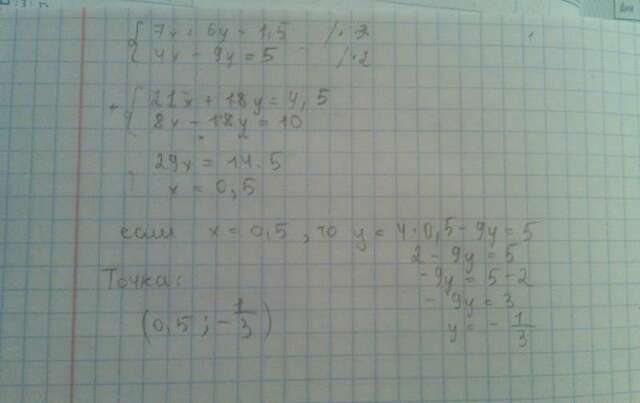 { 7x + 6y = 1,5 / · 3
4x - 9y = 5 / · 2
+ { 21x + 18y = 4,5
8x - 18y = 10
29x = 14.5
x = 0,5
если x = 0,5 , то y = 4·0,5 - 9y = 5
2 - 9y = 5
-9y = 5 - 2
- 9y = 3
y = - 1/3
Точка:
(0,5 ; - 1/3)